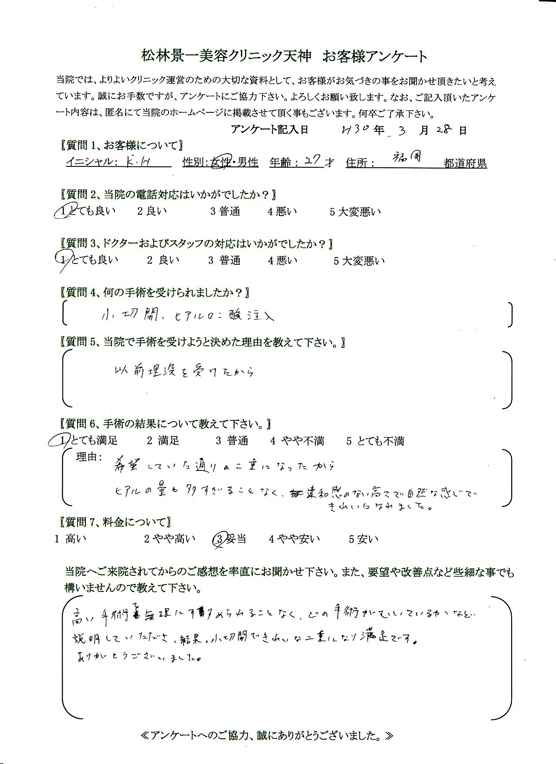 松林景一美容クリニック天神　お客様アンケート
当院では、よりよいクリニック運営のための大切な資料として、お客様がお気づきの事をお聞かせ頂きたいと考え
ています。誠にお手数ですが、アンケートにご協力下さい。よろしくお願い致します。なお、ご記入頂いたアンケ
ート内容は、匿名にて当院のホームページに掲載させて頂く事もございます。何卒ご了承下さい。
アンケート記入日　H30年 3 月 28 日
〖質問 1、お客様について〗
イニシャル： K.H　性別：女性・男性　年齢：27才　住所： 福岡　都道府県
〖質問 2、当院の電話対応はいかがでしたか？〗
1 とても良い　2 良い　3 普通　4 悪い　5 大変悪い
〖質問 3、ドクターおよびスタッフの対応はいかがでしたか？〗
1 とても良い　2 良い　3 普通　4 悪い　5 大変悪い
〖質問 4、何の手術を受けられましたか？〗
小切開、ヒアルロン酸注入
〖質問 5、当院で手術を受けようと決めた理由を教えて下さい。〗
以前埋没を受けたから
〖質問 6、手術の結果について教えて下さい。〗
1 とても満足　2 満足　3 普通　4 やや不満　5 とても不満
理由：
希望していた通りの二重になったから
ヒアルの量も多すぎることなく、違和感のない高さで自然な感じで
きれいになれました。
〖質問 7、料金について〗
1 高い　2 やや高い　3 妥当　4 やや安い　5 安い
当院へご来院されてからのご感想を率直にお聞かせ下さい。また、要望や改善点など些細な事でも
構いませんので教えて下さい。
高い手術を無理にすすめられることなく、どの手術がむいているかなど
説明していただき、結果、小切開できれいな二重になり満足です。
ありがとうございました。
≪アンケートへのご協力、誠にありがとうございました。≫